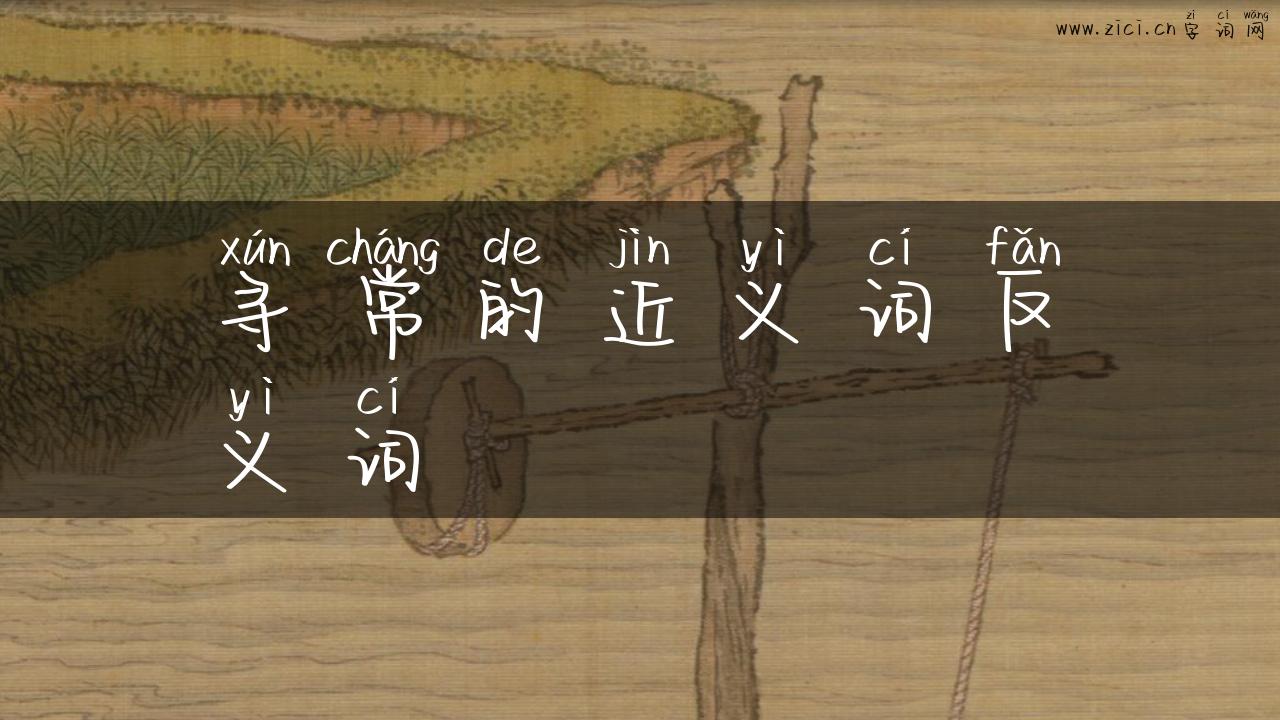 zì cí wǎng
www.zici.cn 字词网
xún cháng de jìn yì cí fǎn
寻常的近义词反
yì cí
义词